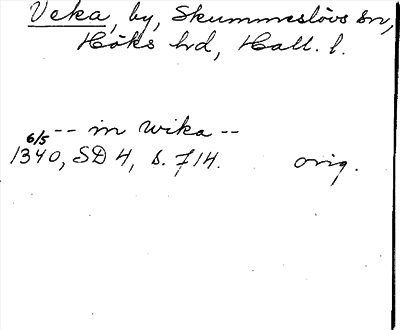 Veka, by, Skummeslövs sn,
Höks hd, Hall. l.
-- in wika --
6/5
1340, SD 4, s. 714. orig.